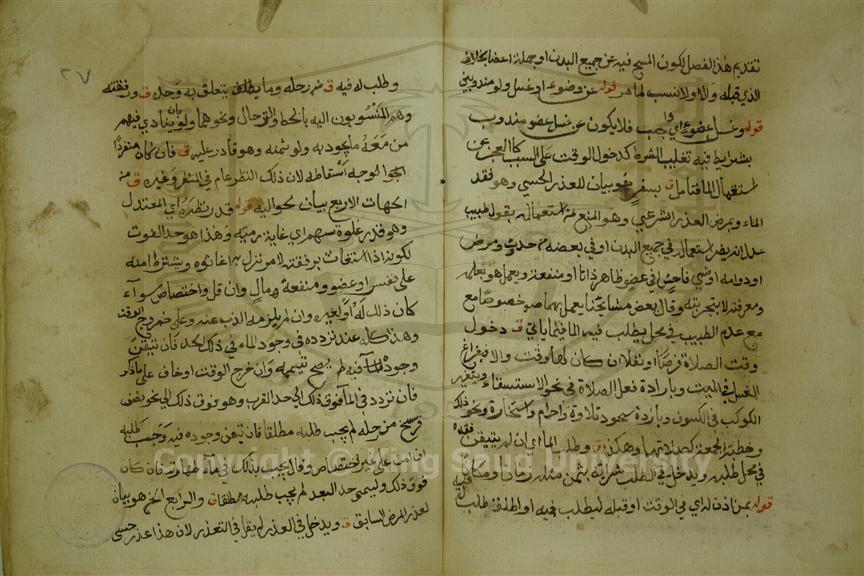 تقديم هذا الفصل لكون المسح فيه عن جميع البدن او جملة اعضا بخلاف
الذي قبله والاولا نسب لما مر قوله عن وضوء او غسل ولو مندوبين
قوله وغسل عضو اي واجب فلا يكون عن غسل عضو مندوب
بشرايط فيه تغليب الشرط كدخول الوقت على السبب كالعجز عن
استعمال الما فتامل ق بسفر هو بيان للعذر الحسي وهو فقد
الماء ومرض العذر الشرعي وهو المنع من استعمال بقول طبيب
عدل استعمال في جميع البدن او في بعضه من حدوث مرض
او دوامه او شين فاحش في عضو ظاهر ذاتا او منفعة ويعمل هو بعلمه
ومعرفته لا بتجربته وقال بعض مشايخنا يعمل بهما خصوصا مع
مع عدم الطبيب في محل يطلب فيه الما فيما ياتي ق دخول
وقت الصلاة فرضا او نفلا ان كان لها وقت والا فبفراغ
الغسل في الميت وبارادة فعل الصلاة في نحو الاستسقاء وبتغير
الكوكب في الكسوف وبارادة سجود تلاوة واحرام واستخارة ونحو ذلك
وخطبة الجمعة كصلاتها وهكذا ق وطلب الما اي ان لم يتيقن فقده
في محل طلبه ويدخل في الطلب شراؤه بثمن مثله زمانا ومكانا
قوله بمن اذن له اي في الوقت او قبله ليطلب فيه او اطلق فطلب له
٢٧
وطلب له فيه ق من رحله وما يتعلق به وحده ق ورفقته
وهم المنسوبون اليه بالحط والترحال ونحوهما ولو بان ينادي فيهم
من معه ما يجود به ولو ثمنه وهو قادر عليه ق فان كان منفردا
الوجه اسقاطه لان ذلك النظر عام في المنفرد وغيره ق من
الجهات الاربع بيان لحواليه قوله قدر نظره اي المعتدل
وهو قدر غلوة سهم اي غاية رميه وهذا هو حد الغوث
لكونه اذا استغاث برفقته لامر نزل به اغاثوه ويشترط امنه
على نفس او عضو ومنفعة ومال وان قل واختصاص سواء
كان ذلك له او لغيره وان لم يلزمه الذب عنه وعلى خروج الوقت
وهذا كله عند تردده في وجود الماء في ذلك الحد فان تيقن
وجود الما فيه لم يصح تيممه وان خرج الوقت او خاف على ما ذكر
فان تردد في الما فوق ذلك الي حد القرب وهو فوق ذلك الي نحو نصف
فرسخ من رحله لم يجب طلبه مطلقا فان تيقن وجوده فيه وجب طلبه
ان امن على غير اختصاص ومال يجب بذلك في ما طهارته فان كان
فوق ذلك ويسمى حد البعد لم يجب طلبه مطلقا ق والرابع الخ هو بيان
لعذر المرض السابق ق ويدخل في العذر في التعذر لان هذا عذر حسي
Copyright © King Saud University